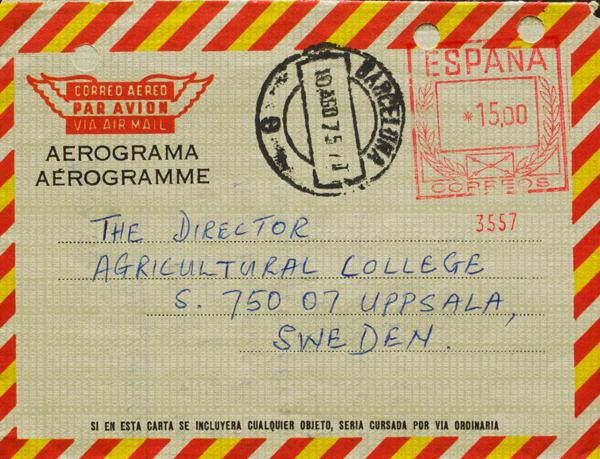 CORREO AEREO
PAR AVION
VIA AIR MAIL
AEROGRAMA
AÉROGRAMME
BARCELONA
10 AGO 75
6
ESPAÑA
*15,00
CORREOS
3557
THE DIRECTOR
AGRICULTURAL COLLEGE
S. 750 07 UPPSALA,
SWEDEN.
SI EN ESTA CARTA SE INCLUYERA CUALQUIER OBJETO, SERIA CURSADA POR VIA ORDINARIA